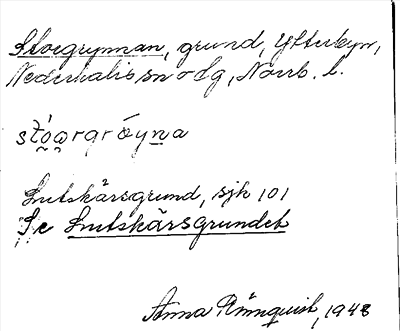 Storgrynnan, grund, Ytterbyn,
Nederkalix sn o Lg, Norrb. l.
Lutskärsgrund, sjk 101
Se Lutskärsgrundet
Anna Rönnquist, 1948